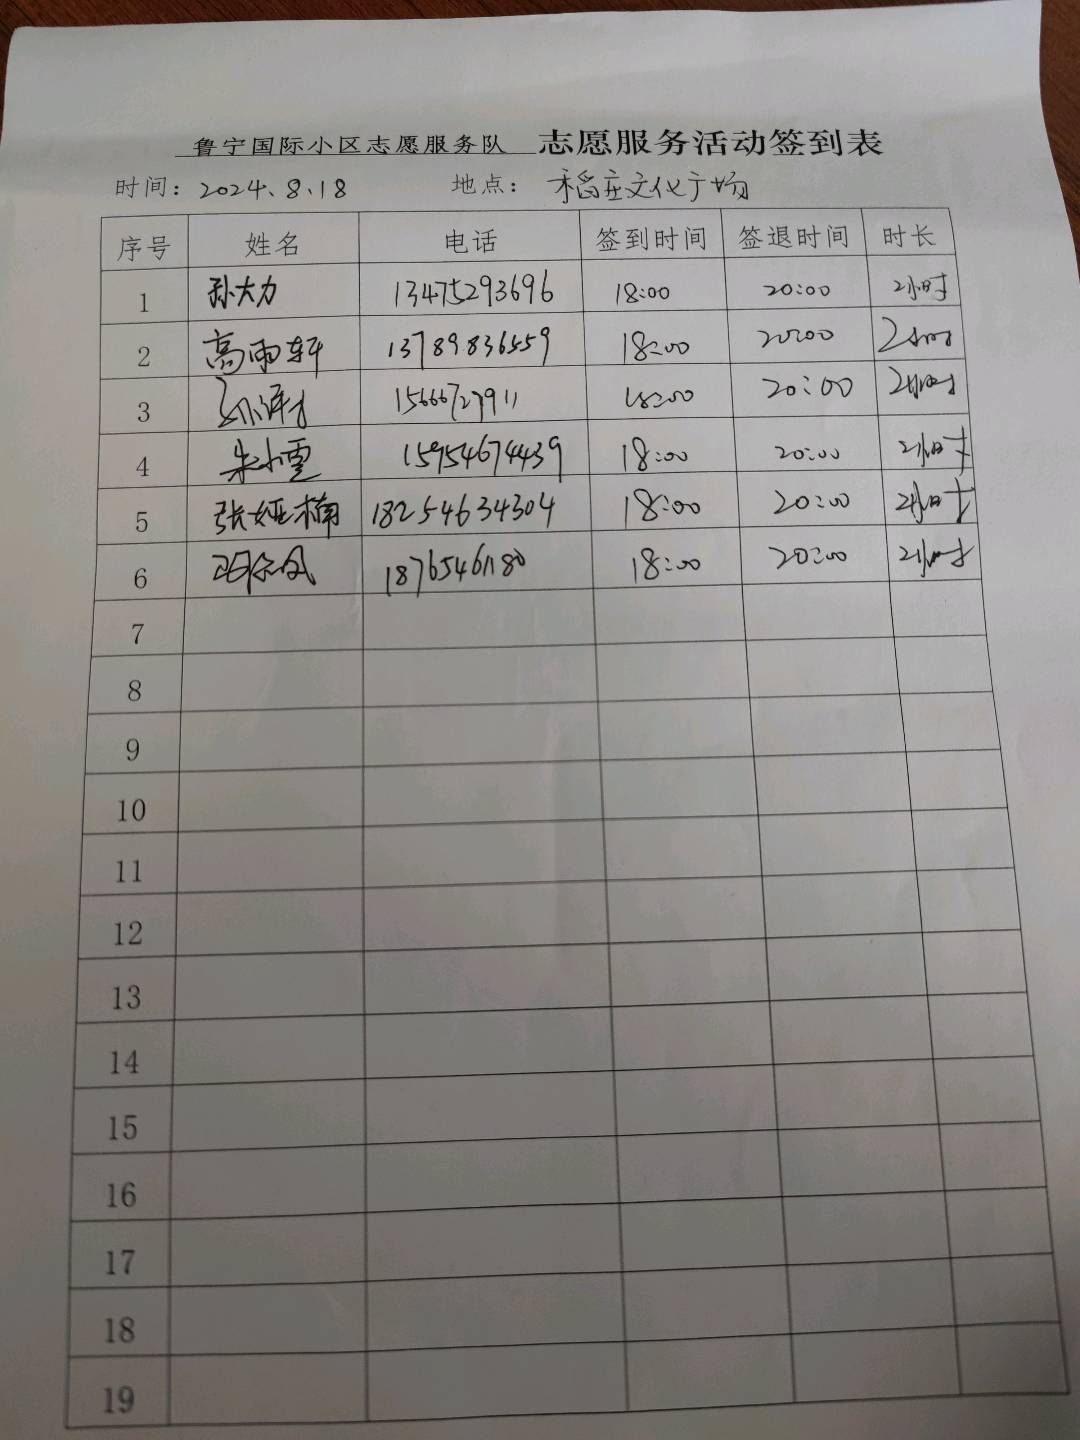 鲁宁国际小区志愿服务队 志愿服务活动签到表
时间：2024、8、18 地点：稻庄文化广场
序号 姓名 电话 签到时间 签退时间 时长
1 孙大力 13475293696 18:00 20:00 2小时
2 高雨轩 13789836559 18:00 20:00 2小时
3 15666727911 18:00 20:00 2小时
4 朱小雪 15954674439 18:00 20:00 2小时
5 张娅楠 18254634304 18:00 20:00 2小时
6 18:00 20:00 2小时
7
8
9
10
11
12
13
14
15
16
17
18
19